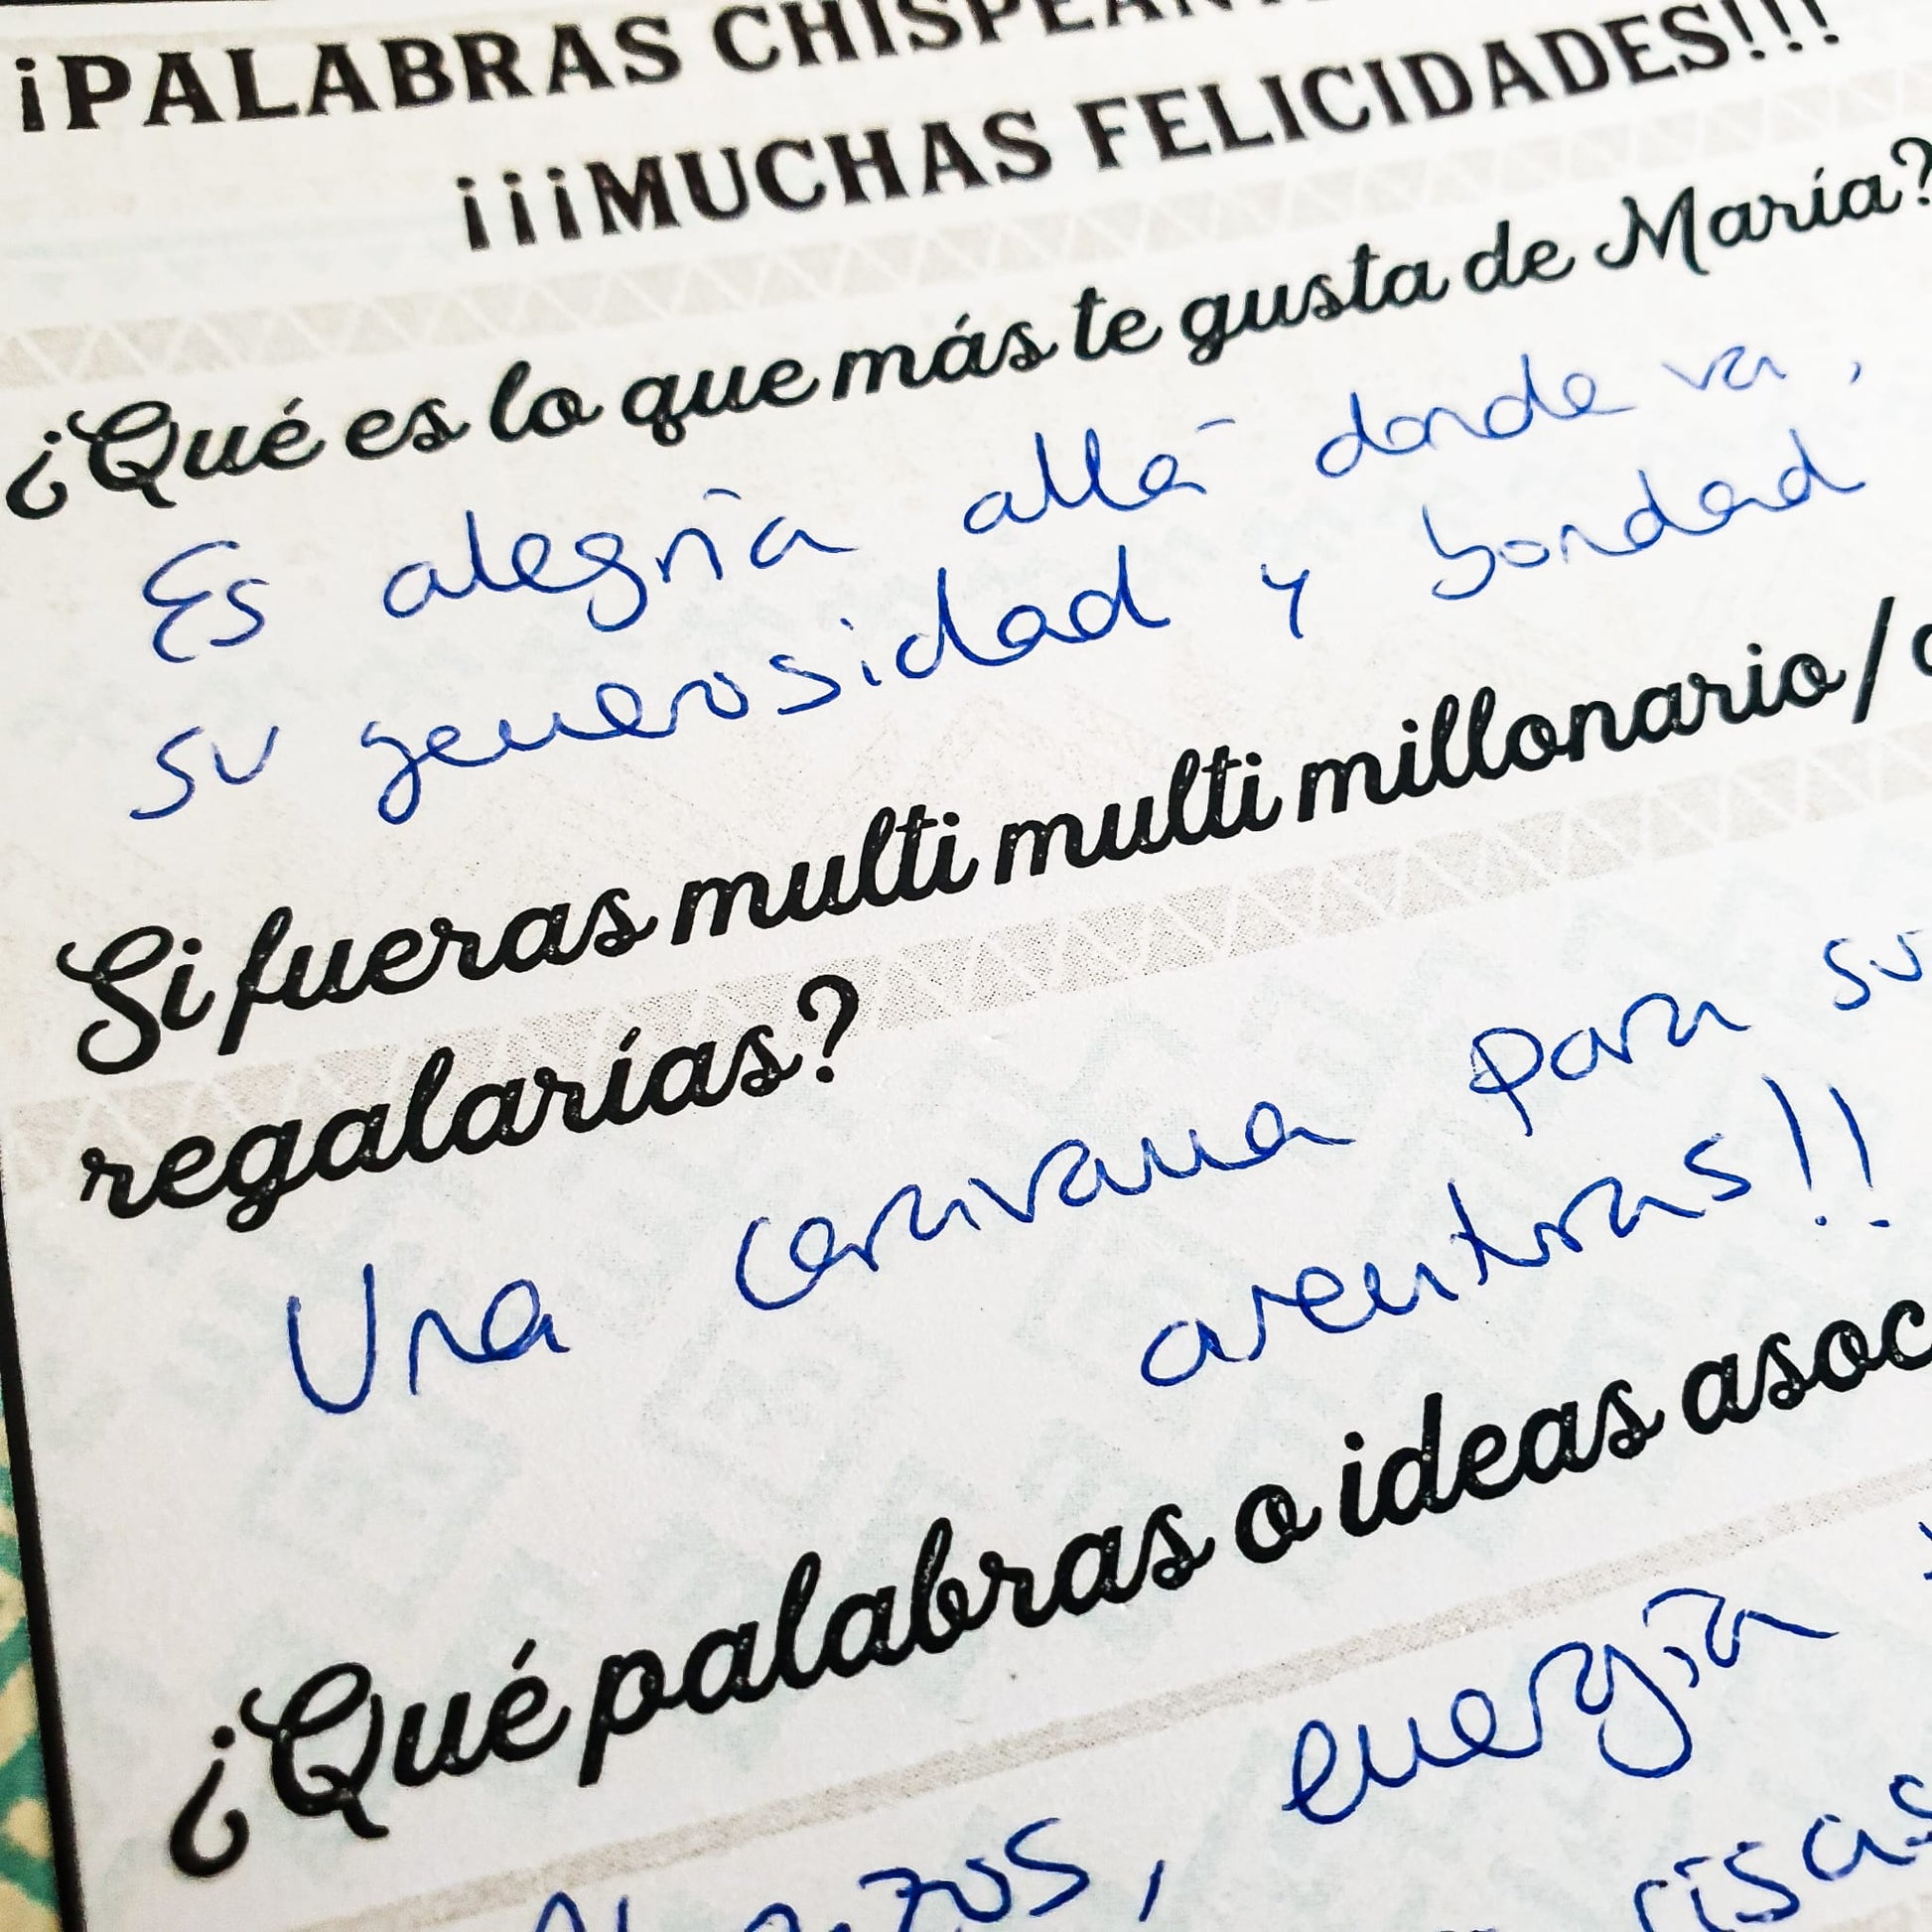 ¡PALABRAS CHISPEANT
¡¡¡MUCHAS FELICIDADES!!!
¿Qué es lo que más te gusta de María?
Es alegría allá donde va,
su generosidad y bondad
Si fueras multi multi millonario/
regalarías?
Una caravana para su
aventuras!!
¿Qué palabras o ideas asoc
energía
risas